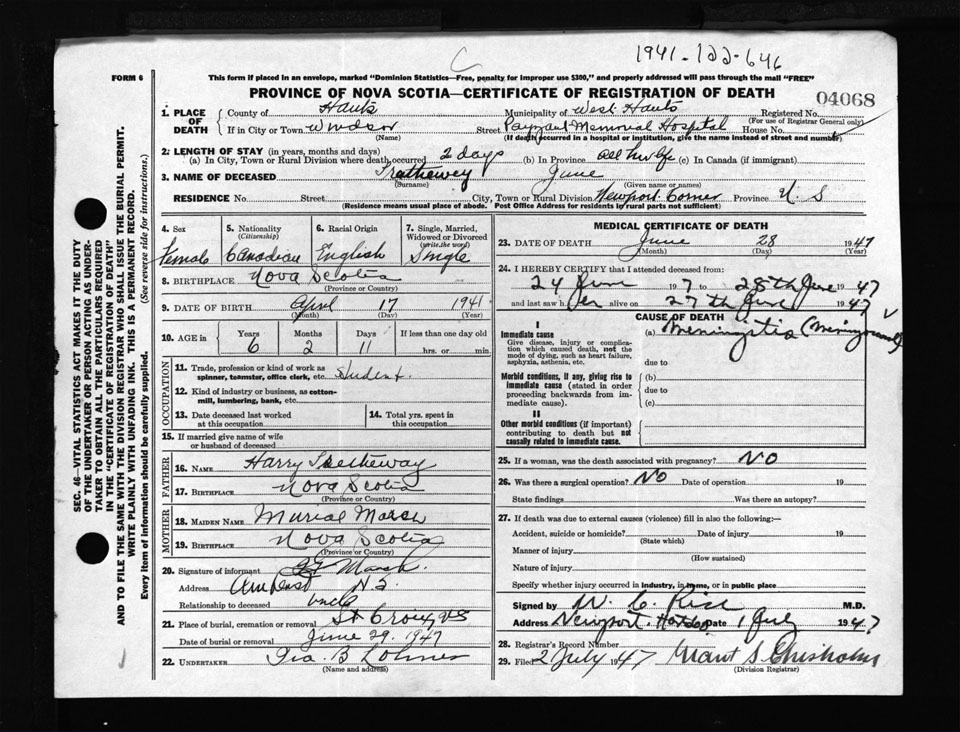 1941-122-646
C
FORM 6
This form if placed in an envelope, marked "Dominion Statistics—Free, penalty for improper use $300," and properly addressed will pass through the mail "FREE"
PROVINCE OF NOVA SCOTIA—CERTIFICATE OF REGISTRATION OF DEATH
04068
1. PLACE OF DEATH
County of Hants Municipality of West Hants Registered No.
(For use of Registrar General only)
If in City or Town Windsor Street Payzant Memorial Hospital House No.
(Name) (If death occurred in a hospital or institution, give the name instead of street and number)
2. LENGTH OF STAY (in years, months and days)
(a) In City, Town or Rural Division where death occurred 2 days (b) In Province all her life (c) In Canada (if immigrant)
3. NAME OF DECEASED Tretheway June
(Surname) (Given name or names)
RESIDENCE No. Street City, Town or Rural Division Newport Corner Province N S
(Residence means usual place of abode. Post Office Address for residents in rural parts not sufficient)
4. Sex Female
5. Nationality (Citizenship) Canadian
6. Racial Origin English
7. Single, Married, Widowed or Divorced (write the word) Single
8. BIRTHPLACE Nova Scotia
(Province or Country)
9. DATE OF BIRTH April 17 1941
(Month) (Day) (Year)
10. AGE in Years Months Days If less than one day old
6 2 11 hrs. or min.
OCCUPATION
11. Trade, profession or kind of work as spinner, teamster, office clerk, etc. Student
12. Kind of industry or business, as cotton-mill, lumbering, bank, etc.
13. Date deceased last worked at this occupation
14. Total yrs. spent in this occupation
15. If married give name of wife or husband of deceased
FATHER
16. NAME Harry Tretheway
17. BIRTHPLACE Nova Scotia
(Province or Country)
MOTHER
18. MAIDEN NAME Murial Marsh
19. BIRTHPLACE Nova Scotia
(Province or Country)
20. Signature of informant Marsh
Address Amherst N S
Relationship to deceased uncle
21. Place of burial, cremation or removal St Croix NS
Date of burial or removal June 29, 1947
22. UNDERTAKER Ira B
(Name and address)
MEDICAL CERTIFICATE OF DEATH
23. DATE OF DEATH June 28 1947
(Month) (Day) (Year)
24. I HEREBY CERTIFY that I attended deceased from:
24 June 1947 to 28th June 1947
and last saw her alive on 27th June 1947
CAUSE OF DEATH
I
Immediate cause
Give disease, injury or complication which caused death, not the mode of dying, such as heart failure, asphyxia, asthenia, etc.
(a) Meningitis
due to
Morbid conditions, if any, giving rise to immediate cause (stated in order proceeding backwards from immediate cause).
(b)
due to
(c)
II
Other morbid conditions (if important) contributing to death but not causally related to immediate cause.
25. If a woman, was the death associated with pregnancy? NO
26. Was there a surgical operation? NO Date of operation 19
State findings Was there an autopsy?
27. If death was due to external causes (violence) fill in also the following:—
Accident, suicide or homicide? Date of injury 19
(State which)
Manner of injury
(How sustained)
Nature of injury
Specify whether injury occurred in industry, in home, or in public place
Signed by W. C. M.D.
Address Newport, Hants Co Date 1 July 1947
28. Registrar's Record Number
29. Filed 2 July 1947 Grant S. Chisholm
(Division Registrar)
SEC. 46—VITAL STATISTICS ACT MAKES IT THE DUTY
OF THE UNDERTAKER OR PERSON ACTING AS UNDER-
TAKER TO OBTAIN ALL THE PARTICULARS REQUIRED
IN THE "CERTIFICATE OF REGISTRATION OF DEATH"
AND TO FILE THE SAME WITH THE DIVISION REGISTRAR WHO SHALL ISSUE THE BURIAL PERMIT.
WRITE PLAINLY WITH UNFADING INK. THIS IS A PERMANENT RECORD.
Every item of information should be carefully supplied. (See reverse side for instructions.)